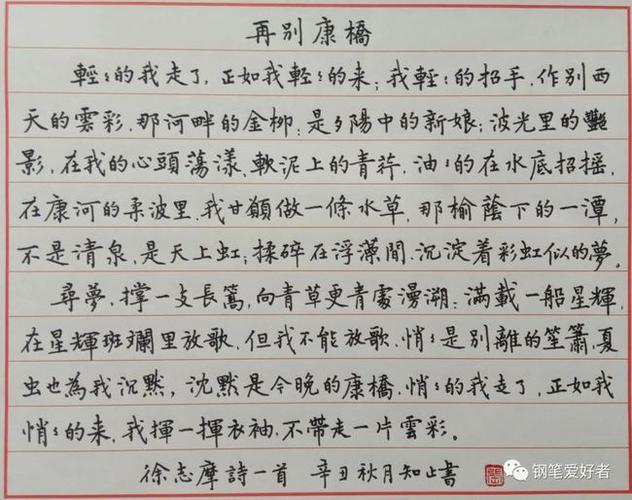 再别康橋
輕〻的我走了,正如我輕〻的来;我輕〻的招手,作别西
天的雲彩.那河畔的金栁;是夕陽中的新娘;波光里的艷
影,在我的心頭蕩漾,軟泥上的青荇,油〻的在水底招摇,
在康河的柔波里.我甘願做一條水草,那榆蔭下的一潭,
不是清泉,是天上虹;揉碎在浮藻間.沉淀着彩虹似的夢。
尋夢,撑一支長篙,向青草更青處漫溯;滿載一船星輝,
在星輝斑斕里放歌.但我不能放歌.悄〻是别離的笙簫.夏
虫也為我沉黙,沈黙是今晚的康橋.悄〻的我走了,正如我
悄〻的来,我揮一揮衣袖.不帶走一片雲彩。
徐志摩詩一首 辛丑秋月知止書
钢笔爱好者